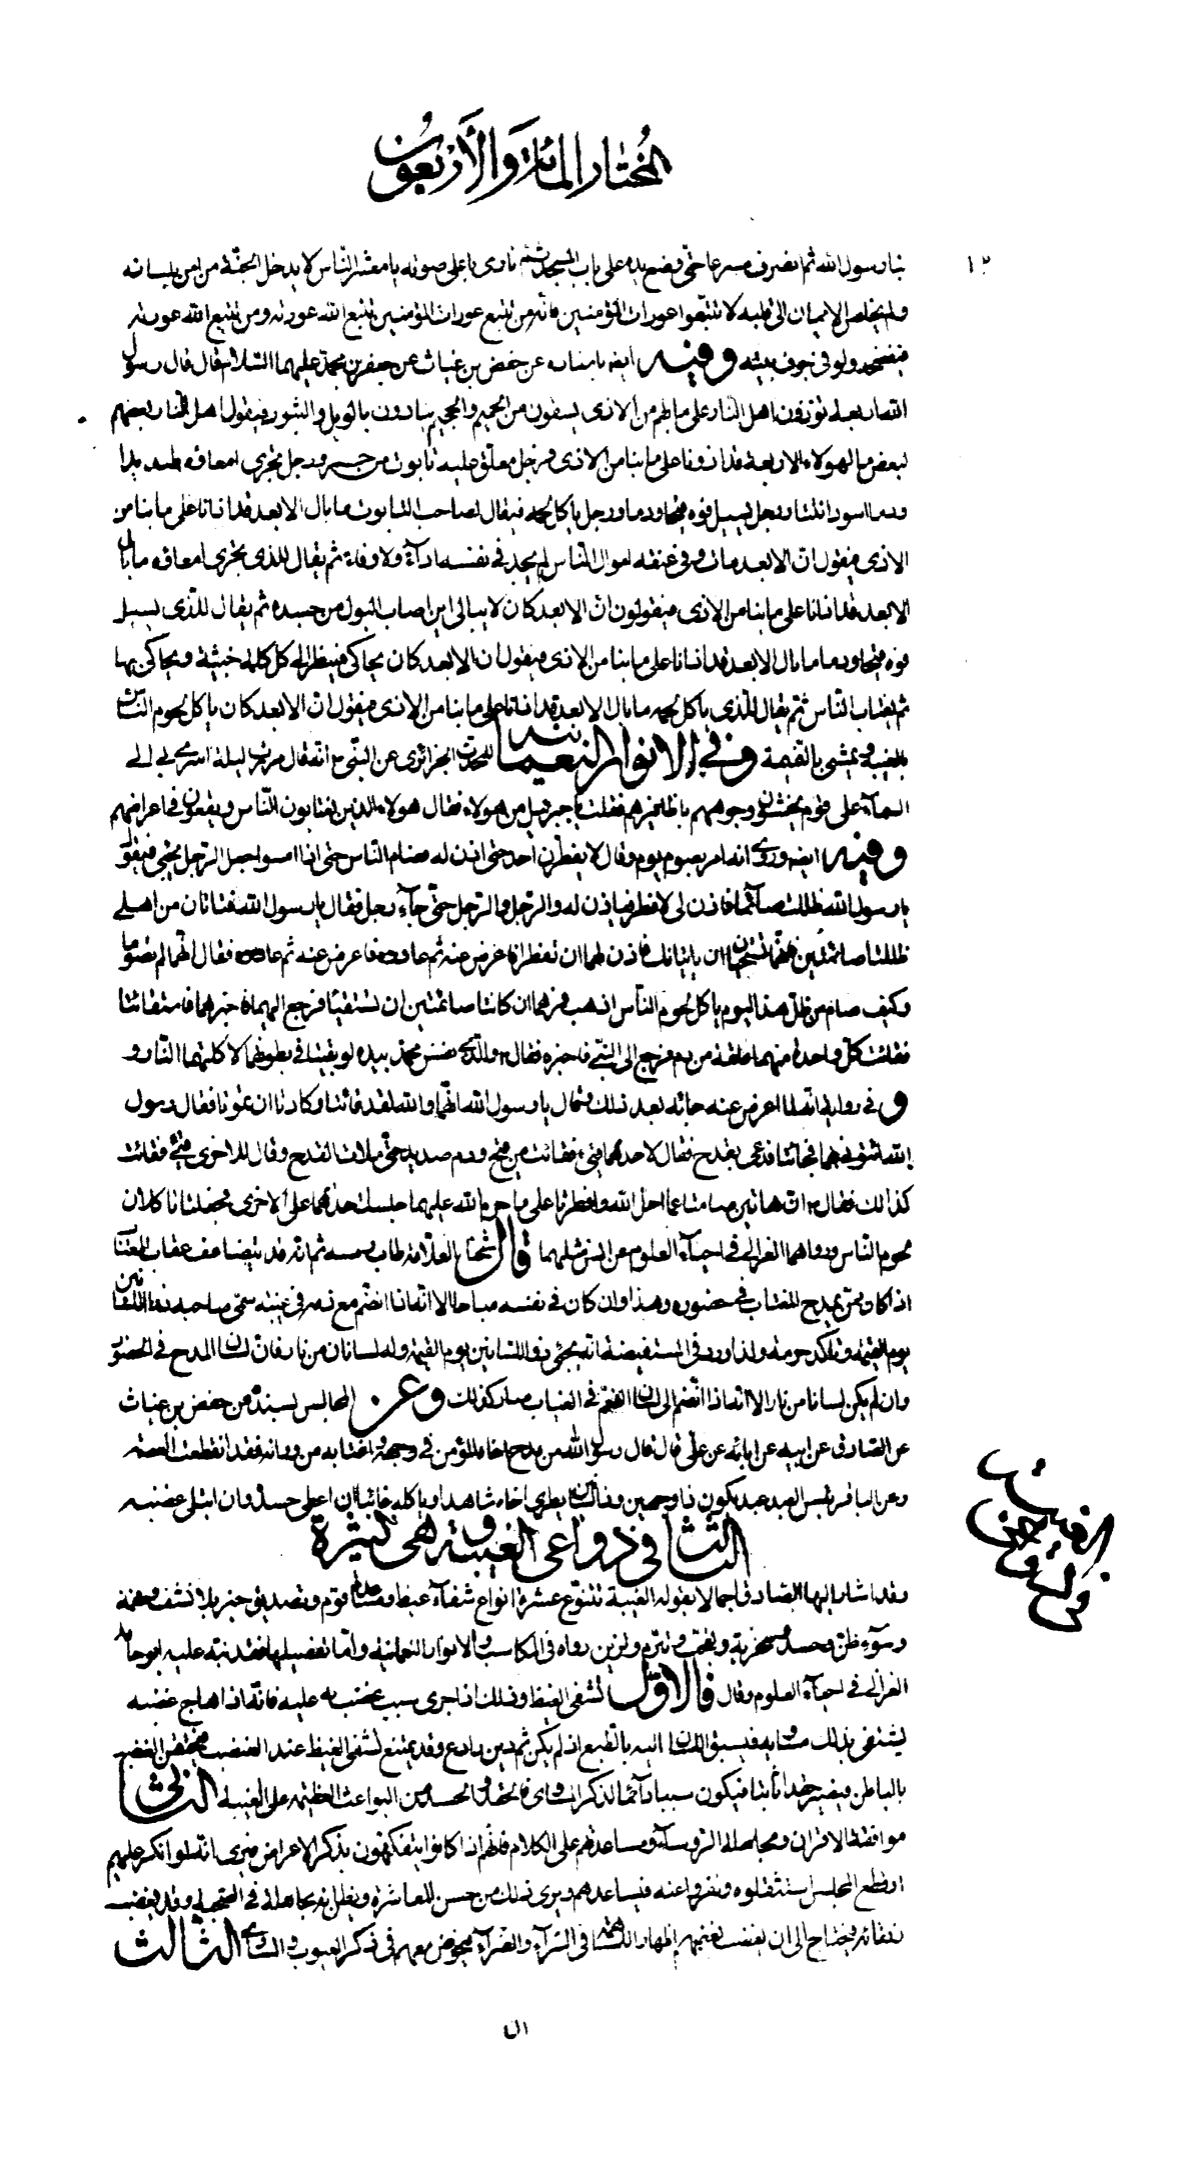 المختار المائة والأربعون
١٢
بنا رسول الله ثم انصرف مسرعا حتى وضع يده على باب المسجد ثم نادى باعلى صوته يا معشر الناس لا يدخل الجنة من امن بلسانه
ولم يخلص الايمان الى قلبه لا تتبعوا عورات المؤمنين فانه من تتبع عورات المؤمنين تتبع الله عورته ومن تتبع الله عورته
فضحه ولو في جوف بيته وفيه ايضا باسناده عن حفص بن غياث عن جعفر بن محمد عليهما السلام قال قال رسول
الله اربعة يؤذون اهل النار على ما بهم من الاذى يسقون من الحميم والجحيم ينادون بالويل والثبور فيقول اهل النار بعضهم
لبعض ما لهؤلاء الاربعة قد اذونا على ما بنا من الاذى فرجل معلق عليه تابوت من جمر ورجل يجري امعاؤه
ورجل يسيل فوه قيحا ودما ورجل ياكل لحمه فيقال لصاحب التابوت ما بال الابعد قد اذانا على ما بنا من
الاذى فيقول ان الابعد مات وفي عنقه اموال الناس لم يجد في نفسه اداء ولا وفاء ثم يقال للذي يجري امعاؤه ما بال
الابعد قد اذانا على ما بنا من الاذى فيقولون ان الابعد كان لا يبالي اين اصاب البول من جسده ثم يقال للذي يسيل
فوه قيحا ودما ما بال الابعد قد اذانا على ما بنا من الاذى فيقول ان الابعد كان يحاكي فينظر الى كل كلمة خبيثة ويحاكي بها
ثم يغتاب الناس ثم يقال للذي ياكل لحمه ما بال الابعد قد اذانا على ما بنا من الاذى فيقول ان الابعد كان ياكل لحوم الناس
بالغيبة ويمشي بالنميمة وفي الانوار النعمانية للمحدث الجزائري عن النبي انه قال مررت ليلة اسري بي الى
السماء على قوم يخمشون وجوههم باظافيرهم فقلت يا جبرئيل من هؤلاء فقال هؤلاء الذين يغتابون الناس ويقعون في اعراضهم
وفيه ايضا وروي انه امر بصوم يوم وقال لا يفطرن احد حتى اذن له فصام الناس حتى اذا امسوا جعل الرجل يجيء فيقول
يا رسول الله ظللت صائما فاذن لي لافطر فياذن له والرجل والرجل حتى جاء رجل فقال يا رسول الله فتاتان من اهلي
ظلتا صائمتين فانهما تستحيان ان ياتيانك فاذن لهما ان تفطرا فاعرض عنه ثم عاوده فاعرض عنه ثم عاوده فقال انهما لم تصوما
وكيف صام من ظل هذا اليوم ياكل لحوم الناس اذهب فمرهما ان كانتا صائمتين ان تستقيئا فرجع اليهما فاخبرهما فاستقائتا
فقائت كل واحدة منهما علقة من دم فرجع الى النبي فاخبره فقال والذي نفس محمد بيده لو بقيتا في بطونهما لاكلتهما النار و
و في رواية انه لما اعرض عنه جائه بعد ذلك وقال يا رسول الله انهما والله لقد ماتتا او كادتا ان تموتا فقال رسول
الله ائتوني بهما فجائتا فدعى بقدح فقال لاحدهما قيئي فقائت من قيح ودم صديد حتى ملات القدح وقال للاخرى قيئي فقائت
كذلك فقال ان هاتين صامتا عما احل الله وافطرتا على ما حرم الله عليهما جلست احدهما على الاخرى فجعلتا تاكلان
لحوم الناس ورواهما الغزالي في احياء العلوم عن انس مثلهما قال شيخنا العلامة طاب رمسه ثم انه قد يتضاعف عقاب المغتاب
اذا كان ممن يمدح المغتاب في حضوره وهذا وان كان في نفسه مباحا الا انه اذا انضم مع ذمه في غيبته سمي صاحبه ذا اللسانين
يوم القيمة وتاكد حرمته ولذا ورد في المستفيضة انه يجيء ذو اللسانين يوم القيمة وله لسانان من نار فان لسان المدح في الحضور
وان لم يكن لسانا من نار الا انه اذا انضم الى لسان الذم في الغياب صار كذلك وعن المجالس بسنده عن حفص بن غياث
عن الصادق عن ابيه عن ابائه عن علي قال قال رسول الله من مدح اخاه المؤمن في وجهه واغتابه من ورائه فقد انقطعت العصمة
وعن الباقر بئس العبد عبد يكون ذا وجهين وذا لسانين يطري اخاه شاهدا وياكله غائبا ان اعطي حسده وان ابتلي
الثالث في دواعي الغيبة وهي كثيرة
وقد اشار اليها الصادق اجمالا بقوله الغيبة تتنوع عشرة انواع شفاء غيظ ومساعدة قوم وتصديق خبر بلا كشف وتهمة
وسوء ظن وحسد وسخرية وتعجب وتبرم وتزين رواه في المكاسب والانوار النعمانية واما تفصيلها فقد نبه عليه ابو حامد
الغزالي في احياء العلوم وقال فالاول تشفي الغيظ وذلك اذا جرى سبب غضب به عليه فانه اذا هاج غضبه
يشتفي بذلك مساويه فيسبق اللسان اليه بالطبع ان لم يكن ثم دين رادع وقد يمتنع تشفي الغيظ عند الغضب فيحتقن الغضب
بالباطن فيصير حقدا ثابتا فيكون سببا دائما لذكر المساوي فالحقد والحسد من البواعث العظيمة على الغيبة الثاني
موافقة الاقران ومجاملة الرفقاء ومساعدتهم على الكلام فانهم اذا كانوا يتفكهون بذكر الاعراض فيرى انه لو انكر عليهم
او قطع المجلس استثقلوه ونفروا عنه فيساعدهم ويرى ذلك من حسن المعاشرة ويظن انه مجاملة في الصحبة وقد يغضب
رفقائه فيحتاج الى ان يغضب لغضبهم اظهارا للمساهمة في السراء والضراء فيخوض معهم في ذكر العيوب والمساوي الثالث